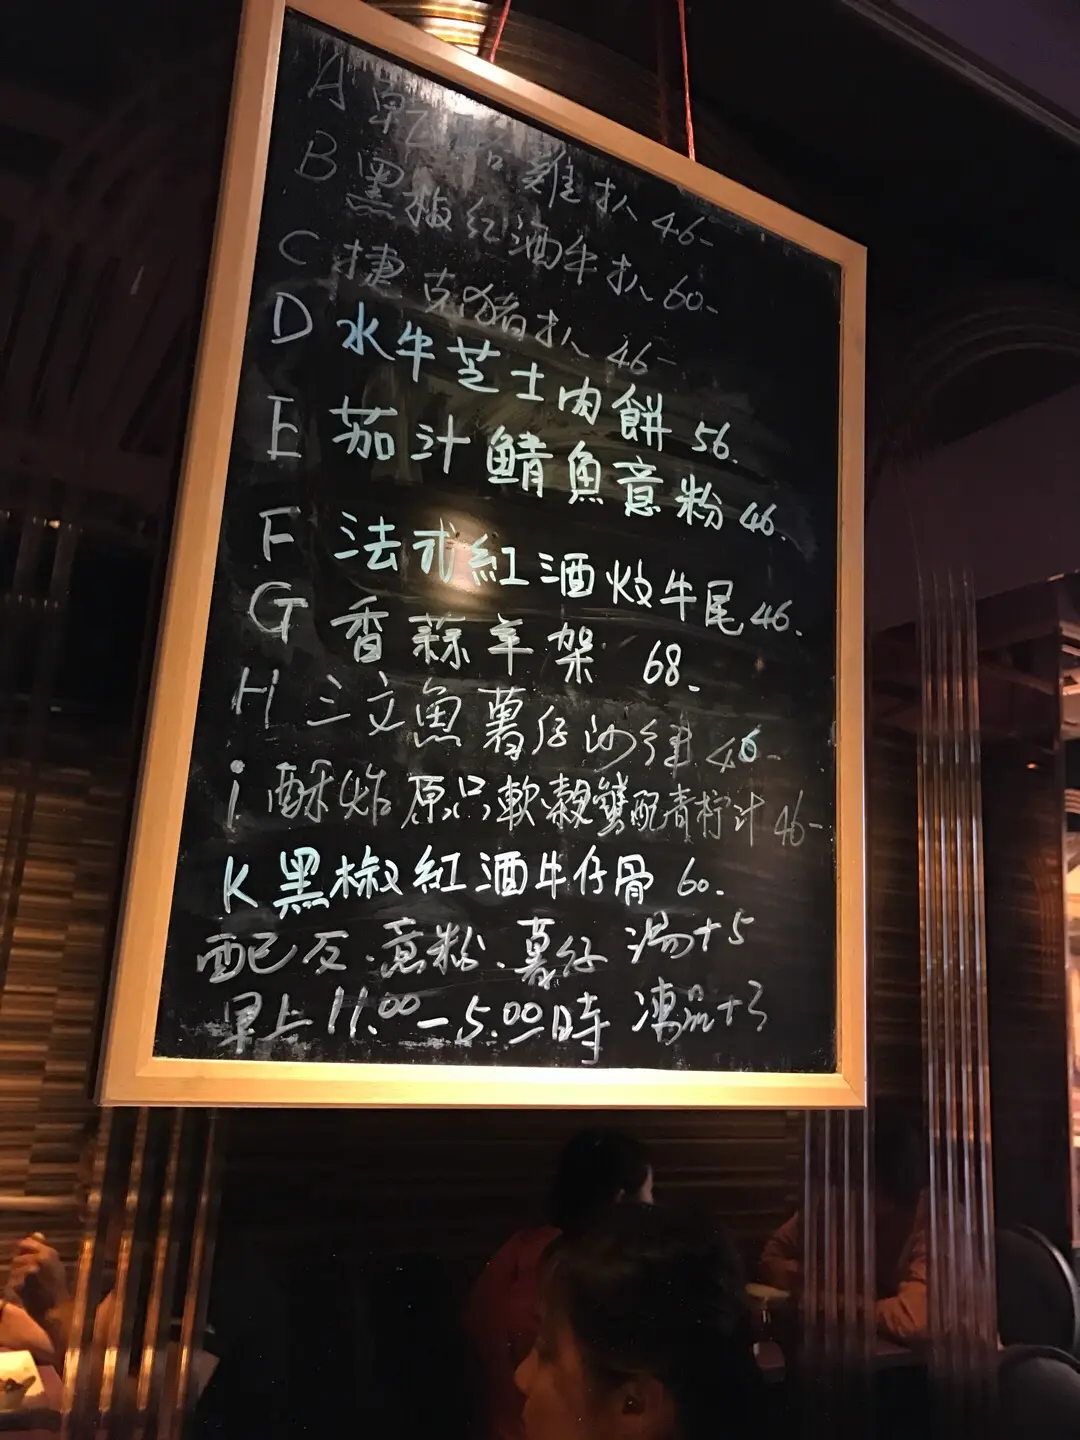 A 乾 雞扒 46-
B 黑椒紅酒牛扒 60-
C 捷克猪扒 46-
D 水牛芝士肉餅 56.
E 茄汁鯖魚意粉 46.
F 法式紅酒炆牛尾 46.
G 香蒜羊架 68.
H 三文魚薯仔沙律 46-
i 酥炸原品軟殼蟹配青柠汁 46-
K 黑椒紅酒牛仔骨 60.
配反.意粉.薯仔 湯+5
早上11.00-5.00時 凍品+3